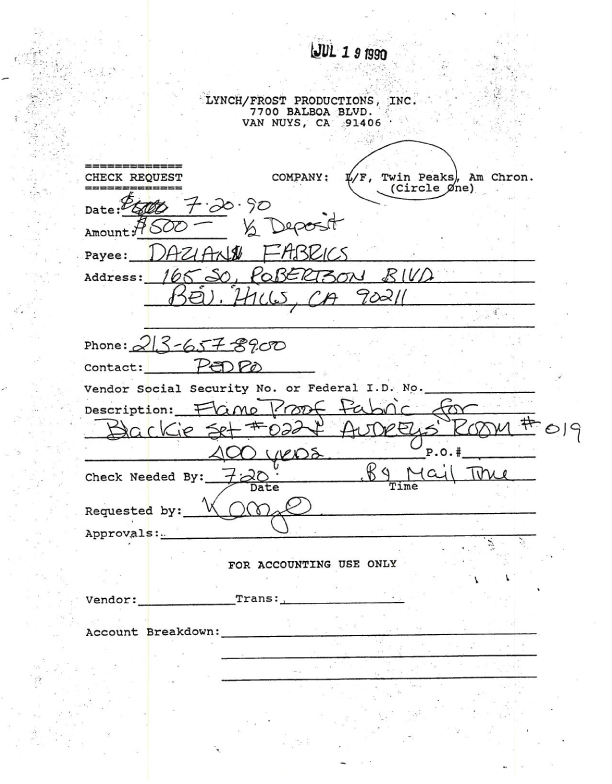 JUL 19 1990
LYNCH/FROST PRODUCTIONS, INC.
7700 BALBOA BLVD.
VAN NUYS, CA 91406
=============
CHECK REQUEST COMPANY: L/F, Twin Peaks, Am Chron.
============= (Circle One)
Date: 7·20·90
Amount: $500— ½ Deposit
Payee: DAZIANS FABRICS
Address: 165 SO. ROBERTSON BLVD
BEV. HILLS, CA 90211
Phone: 213-657-8900
Contact: PEDRO
Vendor Social Security No. or Federal I.D. No.
Description: Flame Proof Fabric for
Blackie set #022 & AUDREYS' ROOM #019
400 yards P.O.#
Check Needed By: 7·20 By Mail Time
Date Time
Requested by:
Approvals:
FOR ACCOUNTING USE ONLY
Vendor: Trans:
Account Breakdown: